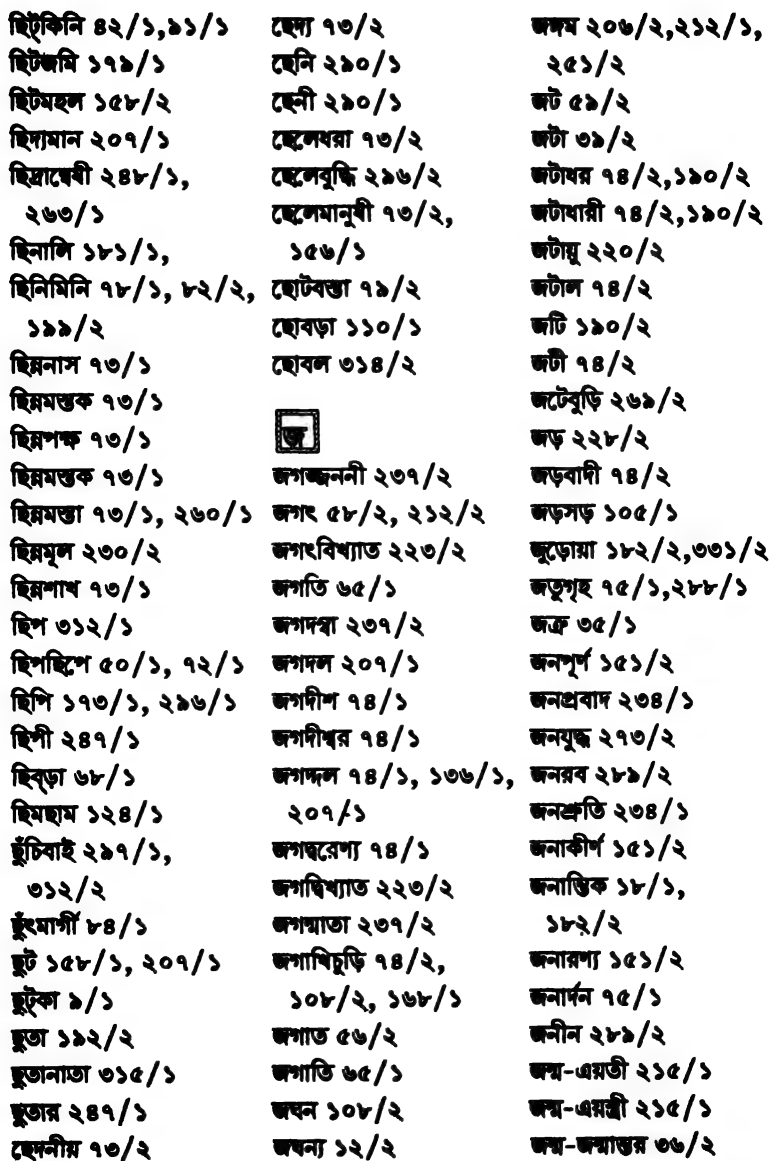 ছিট্‌কিনি ৪২/১,৯১/১
ছিটজমি ১৭৯/১
ছিটমহল ১৫৮/২
ছিদ্যমান ২০৭/১
ছিদ্রান্বেষী ২৪৮/১,
২৬৩/১
ছিনালি ১৮১/১,
ছিনিমিনি ৭৮/১, ৮২/২,
১৯৯/২
ছিন্ননাস ৭৩/১
ছিন্নমস্তক ৭৩/১
ছিন্নপক্ষ ৭৩/১
ছিন্নমস্তক ৭৩/১
ছিন্নমস্তা ৭৩/১, ২৬০/১
ছিন্নমূল ২৩০/২
ছিন্নশাখ ৭৩/১
ছিপ ৩১২/১
ছিপছিপে ৫০/১, ৭২/১
ছিপি ১৭৩/১, ২৯৬/১
ছিপী ২৪৭/১
ছিব্‌ড়া ৬৮/১
ছিমছাম ১২৪/১
ছুঁচিবাই ২৯৭/১,
৩১২/২
ছুঁৎমার্গী ৮৪/১
ছুট ১৫৮/১, ২০৭/১
ছুট্‌কা ৯/১
ছুতা ১৯২/২
ছুতানাতা ৩১৫/১
ছুতার ২৪৭/১
ছেদনীয় ৭৩/২
ছেদ্য ৭৩/২
ছেনি ২৯০/১
ছেনী ২৯০/১
ছেলেধরা ৭৩/২
ছেলেবুদ্ধি ২৯৬/২
ছেলেমানুষী ৭৩/২,
১৫৬/১
ছোটবস্তা ৭৯/২
ছোবড়া ১১০/১
ছোবল ৩১৪/২
জ
জগজ্জননী ২৩৭/২
জগৎ ৫৮/২, ২১২/২
জগৎবিখ্যাত ২২৩/২
জগতি ৬৫/১
জগদম্বা ২৩৭/২
জগদল ২০৭/১
জগদীশ ৭৪/১
জগদীশ্বর ৭৪/১
জগদ্দল ৭৪/১, ১৩৬/১,
২০৭/১
জগদ্বরেণ্য ৭৪/১
জগদ্বিখ্যাত ২২৩/২
জগন্মাতা ২৩৭/২
জগাখিচুড়ি ৭৪/২,
১০৮/২, ১৬৮/১
জগাত ৫৬/২
জগাতি ৬৫/১
জঘন ১০৮/২
জঘন্য ১২/২
জঙ্গম ২০৬/২,২১২/১,
২৫১/২
জট ৫৯/২
জটা ৩৯/২
জটাধর ৭৪/২,১৯০/২
জটাধারী ৭৪/২,১৯০/২
জটায়ু ২২০/২
জটাল ৭৪/২
জটি ১৯০/২
জটী ৭৪/২
জটেবুড়ি ২৬৯/২
জড় ২২৮/২
জড়বাদী ৭৪/২
জড়সড় ১০৫/১
জুড়োয়া ১৮২/২,৩৩১/২
জতুগৃহ ৭৫/১,২৮৮/১
জত্রু ৩৫/১
জনপূর্ণ ১৫১/২
জনপ্রবাদ ২৩৪/১
জনযুদ্ধ ২৭৩/২
জনরব ২৮৯/২
জনশ্রুতি ২৩৪/১
জনাকীর্ণ ১৫১/২
জনান্তিক ১৮/১,
১৮২/২
জনারণ্য ১৫১/২
জনার্দন ৭৫/১
জনীন ২৮৯/২
জন্ম-এয়তী ২১৫/১
জন্ম-এয়স্ত্রী ২১৫/১
জন্ম-জন্মান্তর ৩৬/২